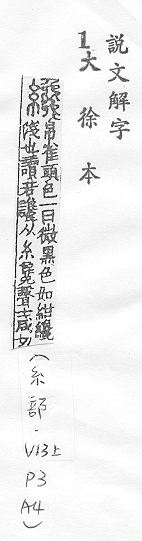 説文解字
1大徐本
纔帛雀頭色一曰微黑色如紺纔
淺也讀若讒从糸毚聲士咸切
(糸部.V13上
P3
A4)